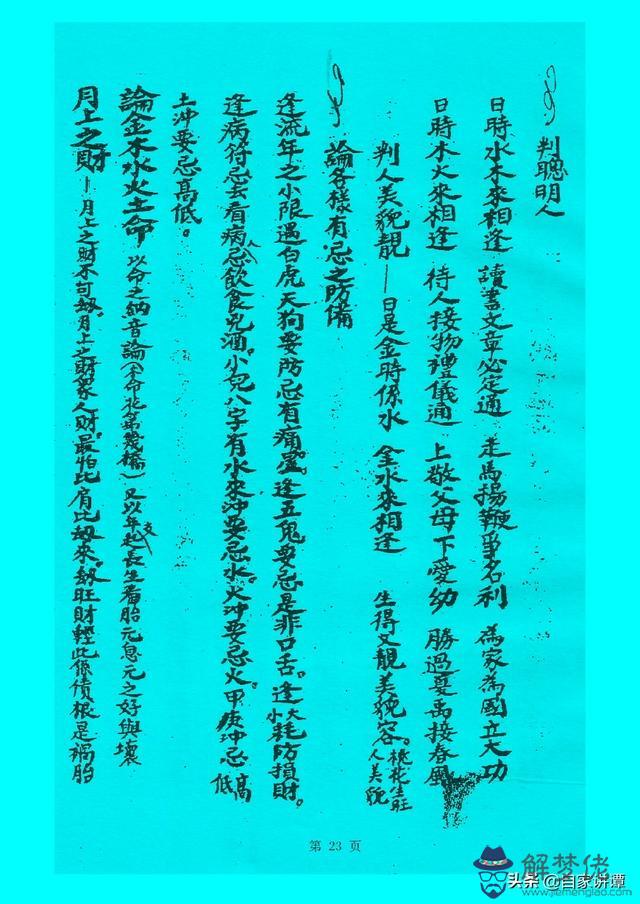 判聰明人
日時水木來相逢 讀書文章必定通 走馬揚鞭爭名利 為家為國立大功
日時木火來相逢 待人接物禮儀通 上敬父母下愛幼 勝過夏禹接春風
判人美貌靚——日是金時係水 金水來相逢 生得又靚美貌容。桃花生旺人美貌
論各樣有忌之防備
逢流年之小限遇白虎天狗要防忌有痛。逢五鬼要忌是非口舌。逢大小耗防損財。
逢病符忌去看病人忌飲食兄酒。小兒八字有水來沖要忌水。火沖要忌火。甲庚沖忌高低
土沖要忌高低。
論金木水火土命 以命之納音論(本命花第幾橋)又以年支起長生看胎元息元之好與壞
月上之財——月上之財不可刼。月上之財眾人財。最怕比肩比刼來。刼旺財輕此係債根是禍胎
第 23 页
解梦佬
www.jiemenglao.com
头条 @自家讲谭